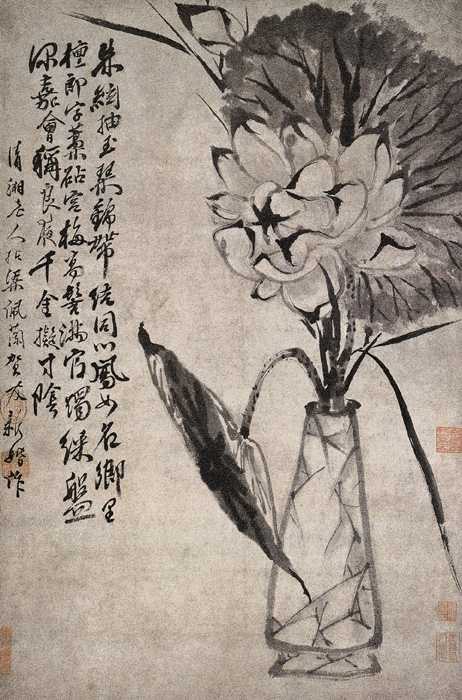 朱絃抽玉琴錦帶結同心鳳女名鄉里
檀郎字藁砧宮梅髻滿官燭綠盤
深嘉會稱良夜千金擬寸陰
清湘老人拈梁佩蘭賀友新婚作